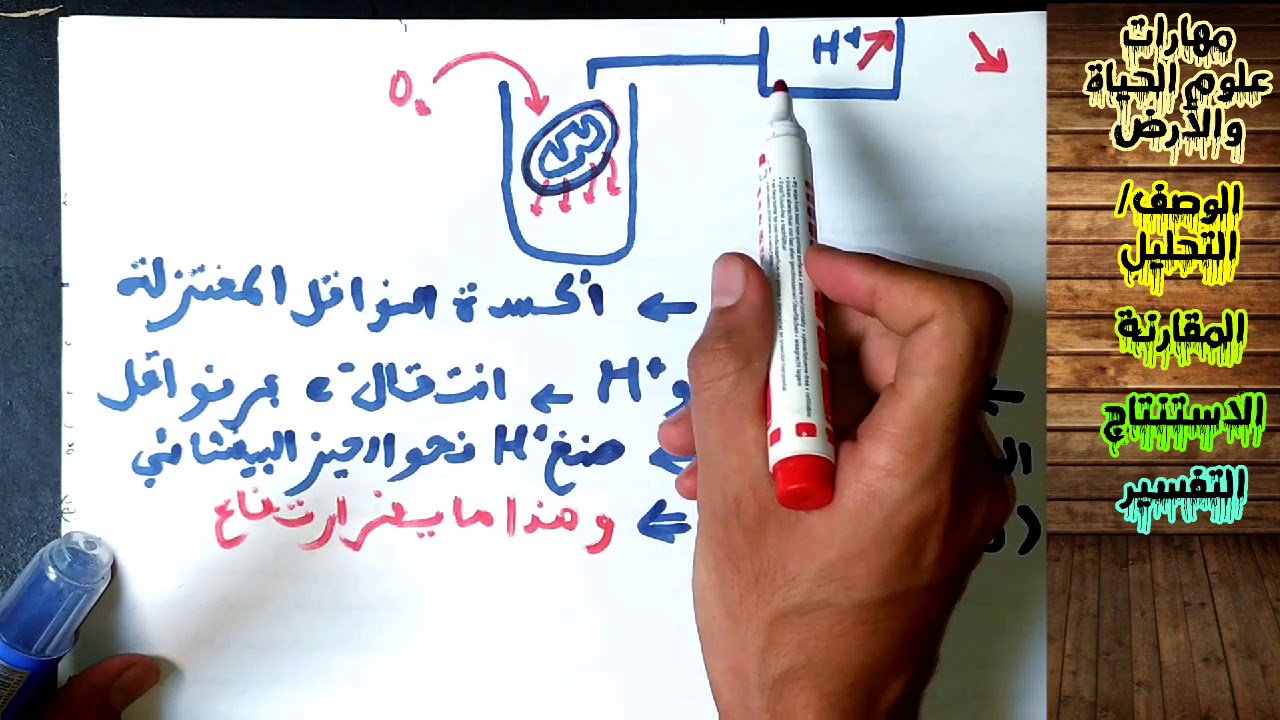 O₂
H⁺
← أكسدة النواقل المختزلة
وH⁺ ← انتقال e⁻ عبر نواقل
ضخ H⁺ نحو الحيز البيغشائي
← وهذا ما يفسر ارتفاع
مهارات
علوم الحياة
والأرض
الوصف/
التحليل
المقارنة
الاستنتاج
التفسير